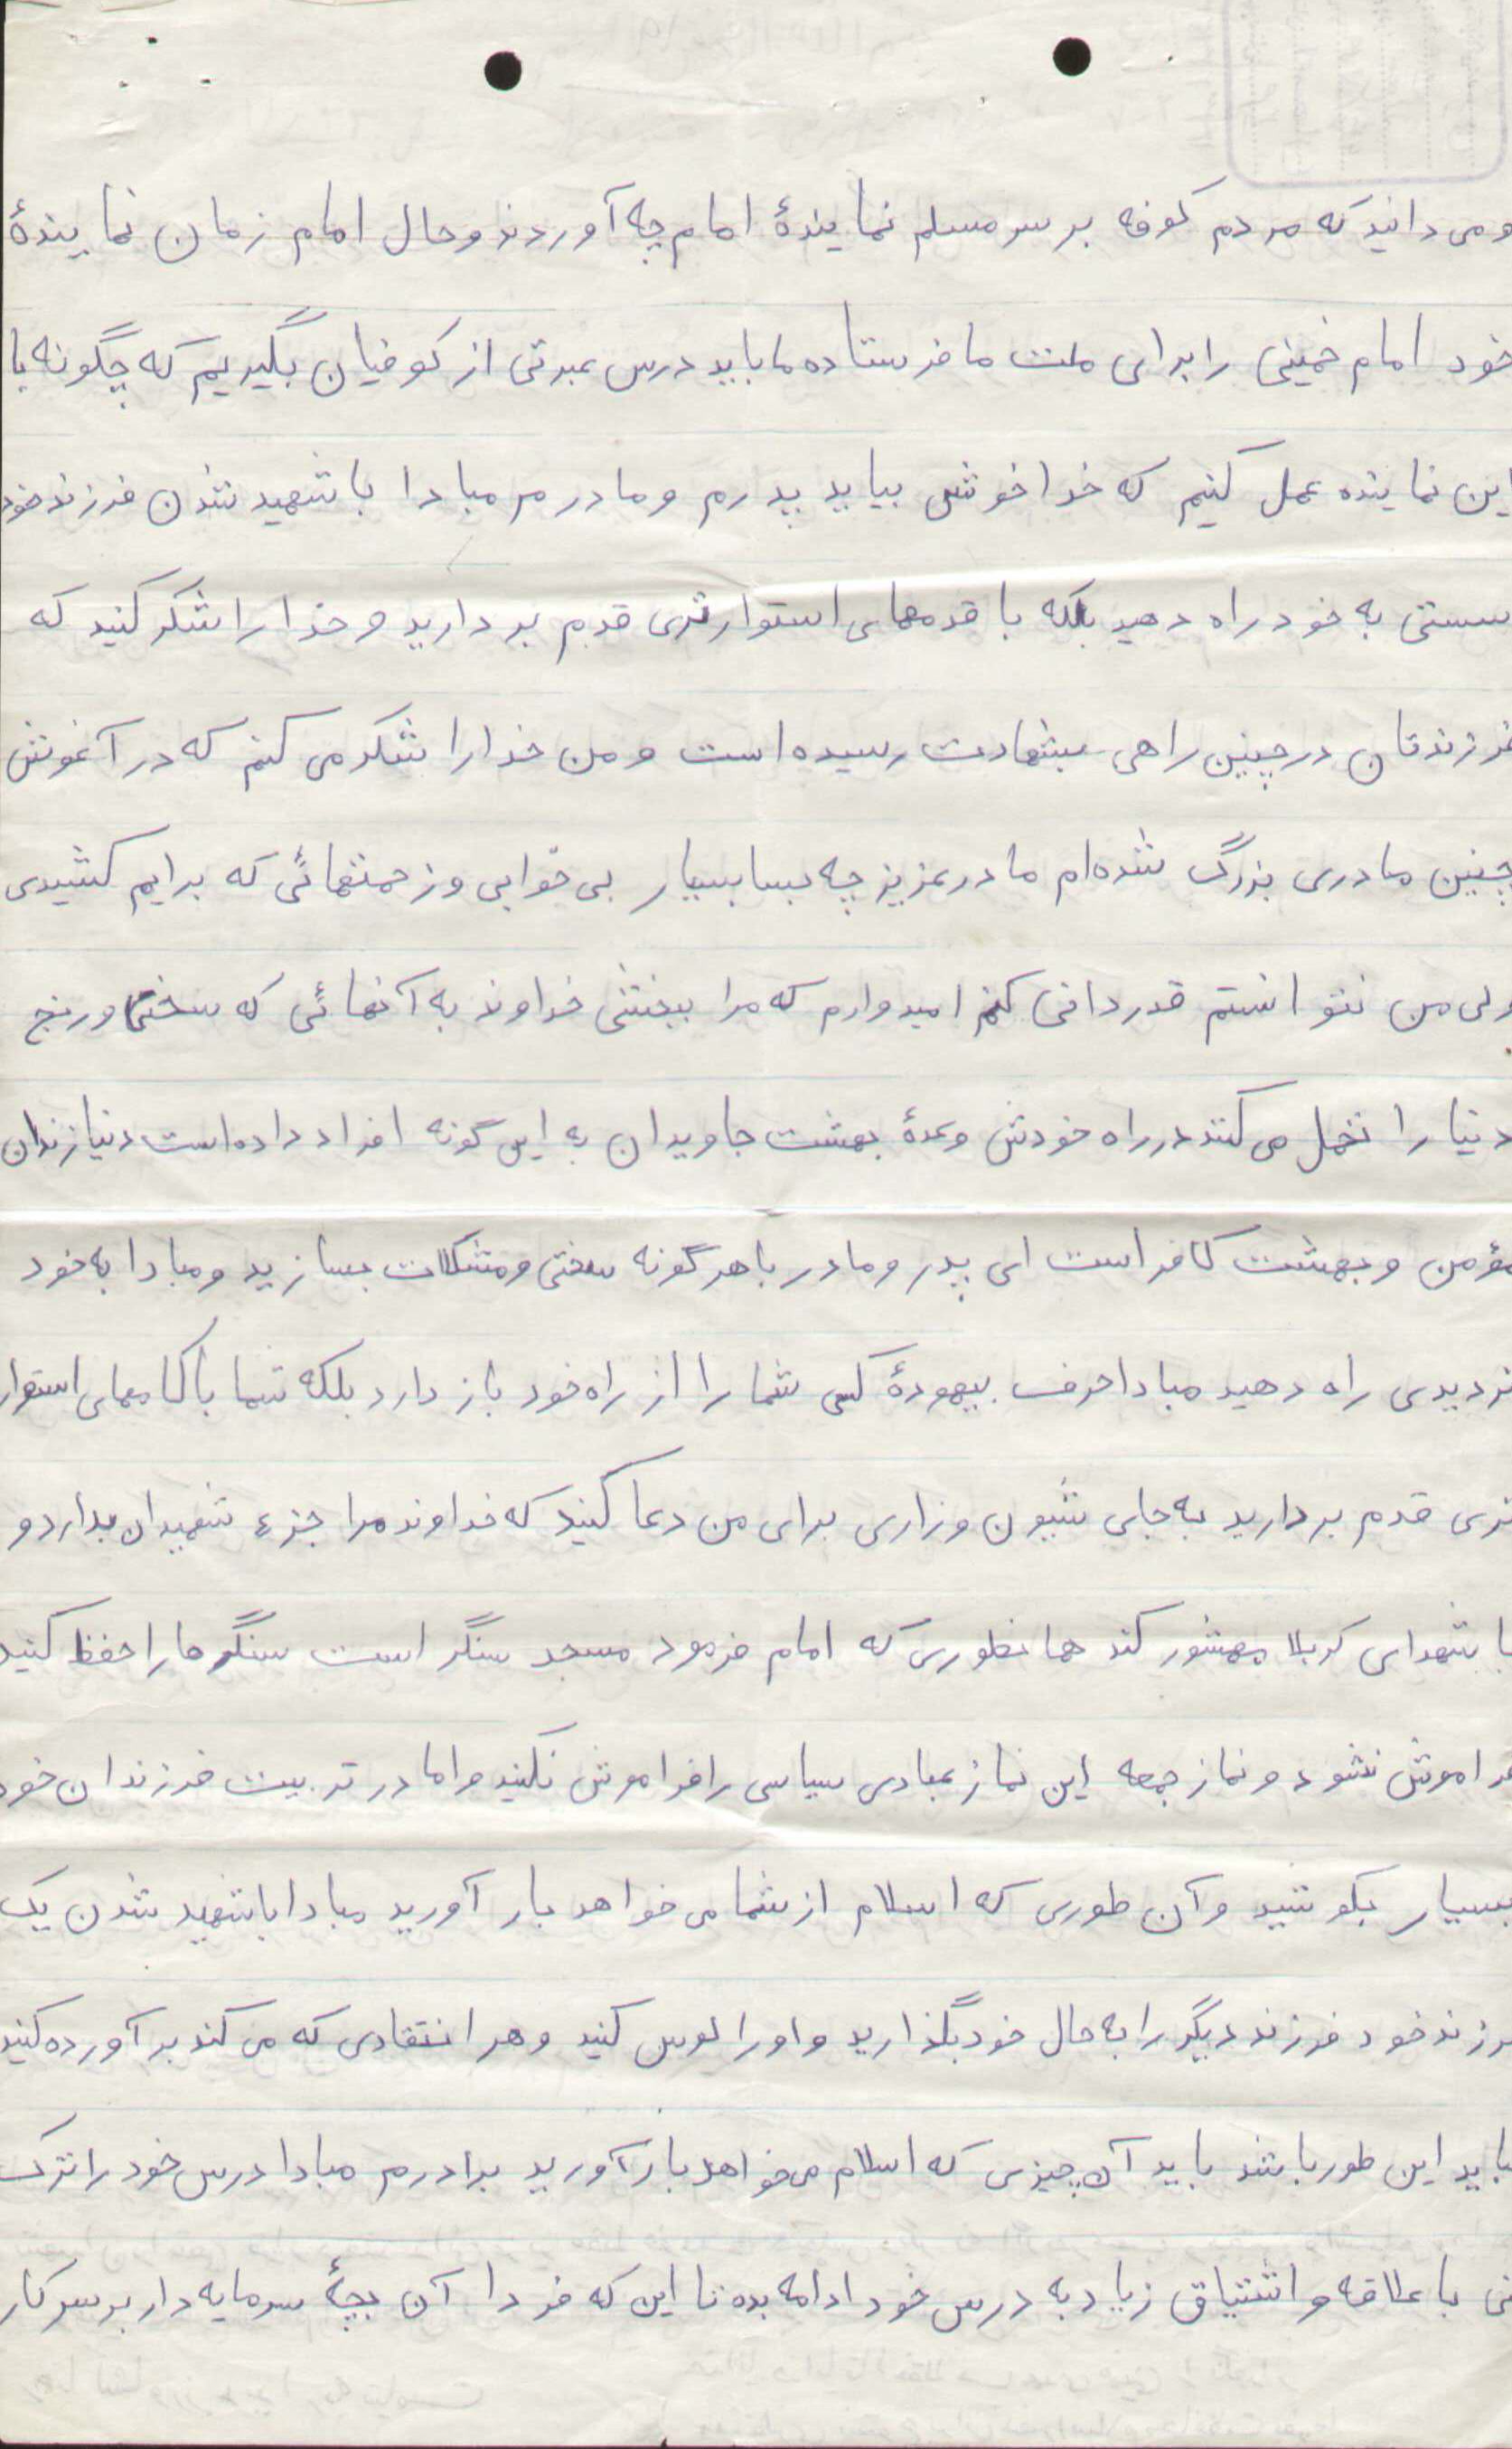 و می دانید که مردم کوفه بر سر مسلم نمایندهٔ امام چه آوردند و حال امام زمان نمایندهٔ
خود امام خمینی را برای ملت ما فرستاده ما باید درس عبرتی از کوفیان بگیریم که چگونه با
این نماینده عمل کنیم که خدا خوشش بیاید پدرم و مادرم مبادا با شهید شدن فرزند خود
سستی به خود راه دهید بلکه با قدمهای استوارتری قدم بردارید و خدا را شکر کنید که
فرزندتان در چنین راهی بشهادت رسیده است و من خدا را شکر می کنم که در آغوش
چنین مادری بزرگ شده‌ام مادر عزیز چه بسا بسیار بی خوابی و زحمتهائی که برایم کشیدی
ولی من نتوانستم قدردانی کنم امیدوارم که مرا ببخشی خداوند به آنهائی که سختی و رنج
دنیا را تحمل می کنند در راه خودش وعدهٔ بهشت جاویدان به این گونه افراد داده است دنیا زندان
مؤمن و بهشت کافر است ای پدر و مادر با هر گونه سختی و مشکلات بسازید و مبادا به خود
تردیدی راه دهید مبادا حرف بیهودهٔ کسی شما را از راه خود باز دارد بلکه شما با گامهای استوار
تری قدم بردارید به جای شیون و زاری برای من دعا کنید که خداوند مرا جزء شهیدان بدارد و
با شهدای کربلا مهشور کند همانطوری که امام فرمود مسجد سنگر است سنگرها را حفظ کنید
فراموش نشود و نماز جمعه این نماز عبادی سیاسی را فراموش نکنید و اما در تربیت فرزندان خود
بسیار بکوشید و آن طوری که اسلام از شما می خواهد بار آورید مبادا با شهید شدن یک
فرزند خود فرزند دیگر را به حال خود بگذارید و او را لوس کنید و هر انتقادی که می کند برآورده کنید
نباید این طور باشد باید آن چیزی که اسلام می خواهد بار آورید برادرم مبادا درس خود را ترک
کنی با علاقه و اشتیاق زیاد به درس خود ادامه بده تا این که فردا آن بچهٔ سرمایه دار بر سر کار